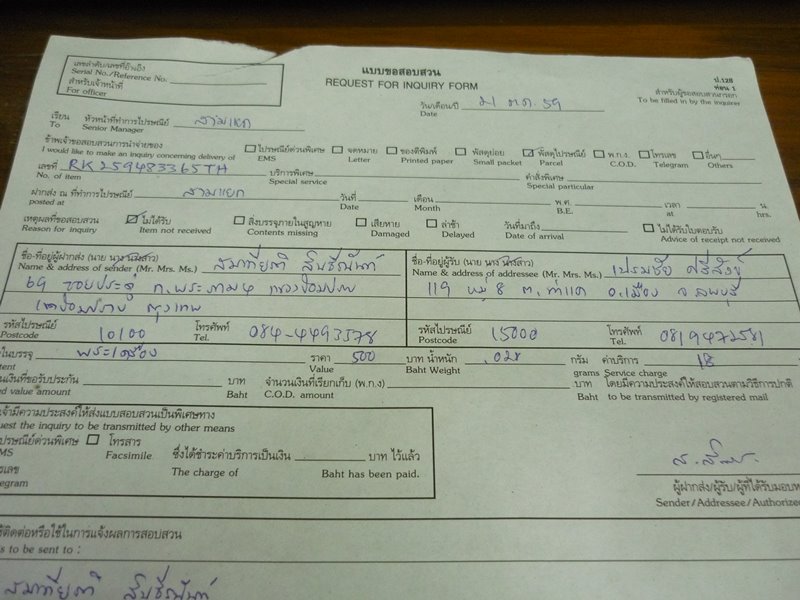 เลขลำดับ/เลขที่อ้างอิง
Serial No./Reference No.
สำหรับเจ้าหน้าที่
For officer
แบบขอสอบสวน
REQUEST FOR INQUIRY FORM
ป.128
ท่อน 1
สำหรับผู้ขอสอบสวนกรอก
To be filled in by the inquirer
วัน/เดือน/ปี ต.ค. 59
Date
เรียน หัวหน้าที่ทำการไปรษณีย์ สามแยก
To Senior Manager
ข้าพเจ้าขอสอบสวนการนำจ่ายของ ไปรษณีย์ด่วนพิเศษ จดหมาย ของตีพิมพ์ พัสดุย่อย พัสดุไปรษณีย์ พ.ก.ง. โทรเลข อื่นๆ
I would like to make an inquiry concerning delivery of EMS Letter Printed paper Small packet Parcel C.O.D. Telegram Others
เลขที่ RK259483365TH บริการพิเศษ คำสั่งพิเศษ
No. of item Special service Special particular
ฝากส่ง ณ ที่ทำการไปรษณีย์ สามแยก วันที่ เดือน พ.ศ. เวลา น.
posted at Date Month B.E. at hrs.
เหตุผลที่ขอสอบสวน ไม่ได้รับ สิ่งบรรจุภายในสูญหาย เสียหาย ล่าช้า วันที่มาถึง ไม่ได้รับใบตอบรับ
Reason for inquiry Item not received Contents missing Damaged Delayed Date of arrival Advice of receipt not received
ชื่อ-ที่อยู่ผู้ฝากส่ง (นาย นาง นางสาว)
Name & address of sender (Mr. Mrs. Ms.)
69 ซอยประดู่ ถ.พระราม 4 แขวงป้อมปราบ
เขตป้อมปราบ กรุงเทพ
รหัสไปรษณีย์ 10100 โทรศัพท์ 084-4493378
Postcode Tel.
ชื่อ-ที่อยู่ผู้รับ (นาย นาง นางสาว) เปรมชัย
Name & address of addressee (Mr. Mrs. Ms.)
119 หมู่ 8 ต.ท่าแค อ.เมือง จ.ลพบุรี
รหัสไปรษณีย์ 15000 โทรศัพท์
Postcode Tel.
ในบรรจุ พระเครื่อง ราคา 500 บาท น้ำหนัก .028 กรัม ค่าบริการ 18
Value Baht Weight grams Service charge
เงินที่ขอรับประกัน บาท จำนวนเงินที่เรียกเก็บ (พ.ก.ง) บาท โดยมีความประสงค์ให้สอบสวนตามวิธีการปกติ
value amount Baht C.O.D. amount Baht to be transmitted by registered mail
เจ้ามีความประสงค์ให้ส่งแบบสอบสวนเป็นพิเศษทาง
the inquiry to be transmitted by other means
ไปรษณีย์ด่วนพิเศษ โทรสาร ซึ่งได้ชำระค่าบริการเป็นเงิน บาท ไว้แล้ว
Facsimile The charge of Baht has been paid.
ผู้ฝากส่ง/ผู้รับ/ผู้ที่ได้รับมอบ
Sender/Addressee/Authorized
ติดต่อหรือใช้ในการแจ้งผลการสอบสวน
to be sent to :